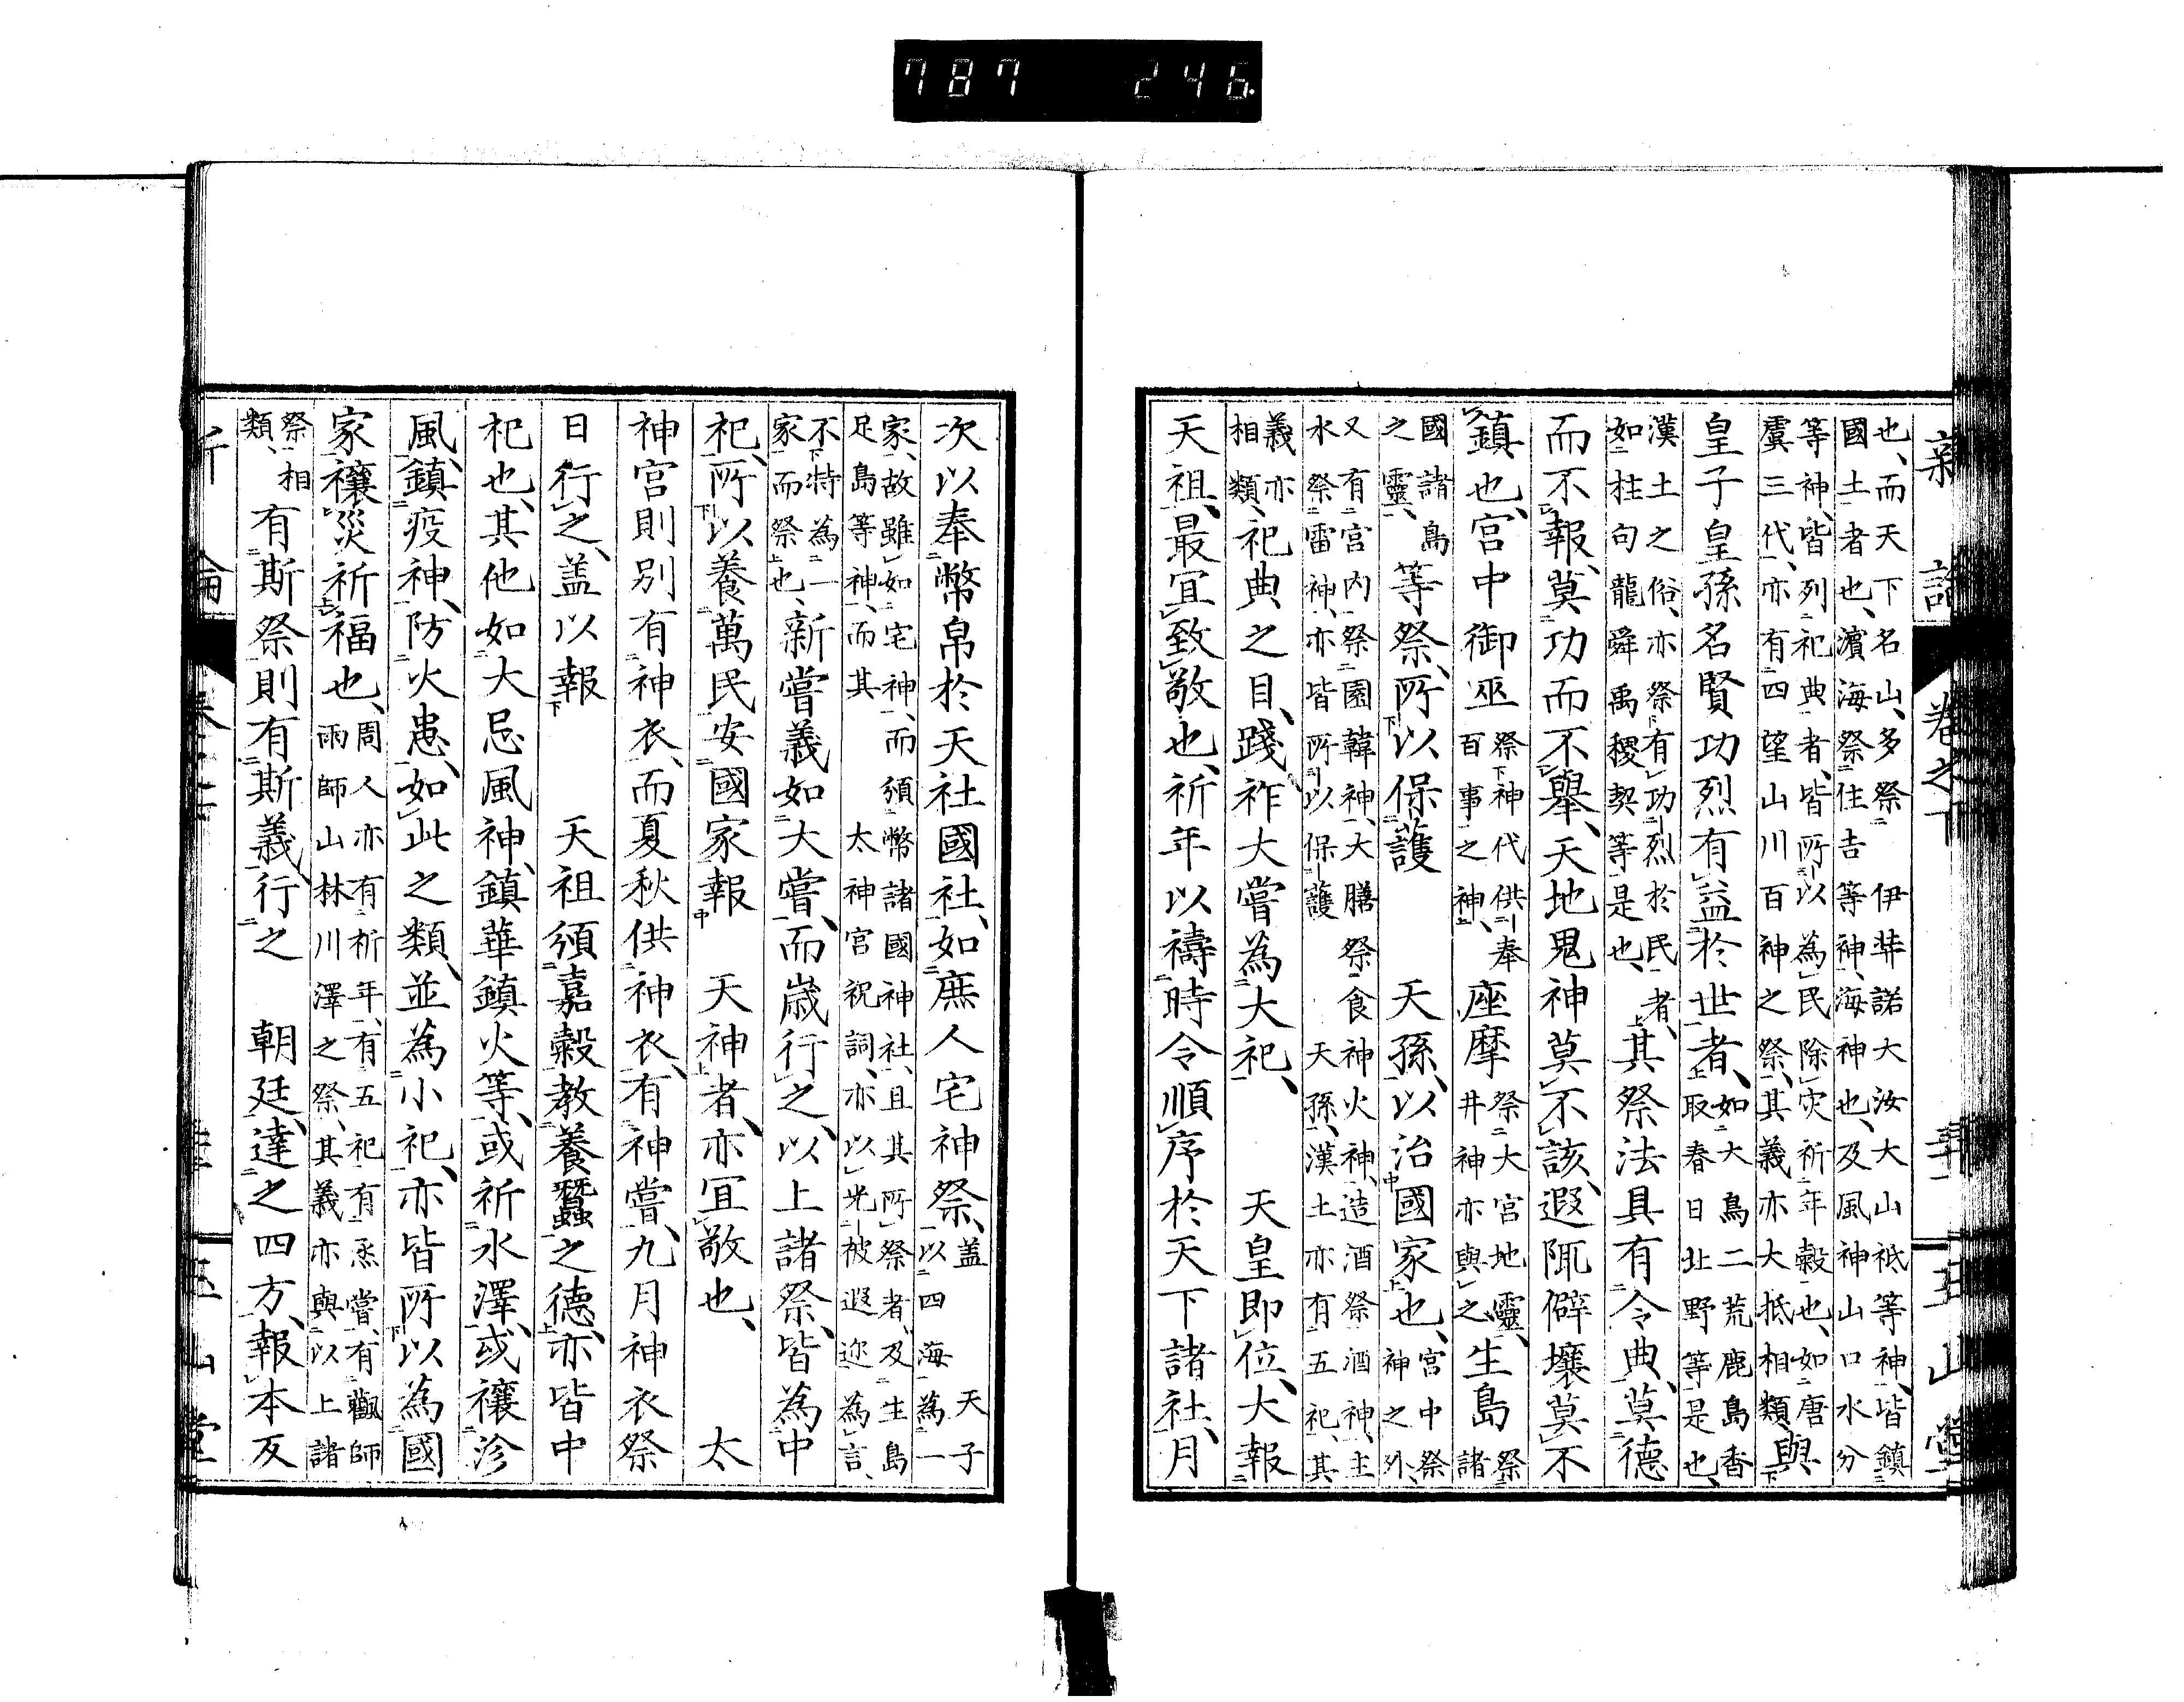 787 246
新論 卷之下 玉山堂
也、而天下名山、多祭伊弉諾大汝大山祇等神、皆鎮
國土者也、濱海祭住吉等神、海神也、及風神山口水分
等神、皆列祀典者、皆所以為民除灾祈年穀也、如唐
虞三代、亦有四望山川百神之祭、其義亦大抵相類、與
皇子皇孫名賢功烈有益於世者、如大鳥二荒鹿島香
取春日北野等是也、
漢土之俗、亦祭有功烈於民者、
如柱句龍舜禹稷契等是也、其祭法具有令典、莫德
而不報、莫功而不舉、天地鬼神莫不該、遐陬僻壤莫不
鎮也、宮中御巫祭神代供奉
百事之神、座摩祭大宮地靈、
井神亦與之生島祭
諸
國諸島
之靈、等祭、所以保護 天孫、以治國家也、宮中祭
神之外、
又有宮內祭園韓神、大膳祭食神火神、造酒祭酒神、主
水祭雷神、亦皆所以保護 天孫、漢土亦有五祀、其
義亦
相類、祀典之目、踐祚大嘗為大祀、 天皇即位、大報
天祖、最宜致敬也、祈年以禱時令順序於天下諸社、月
次以奉幣帛於天社國社、如庶人宅神祭、盖 天子
以四海為一
家、故雖如宅神、而頒幣諸國神社、且其所祭者、及生島
足島等神、而其 太神宮祝詞、亦以光被遐迩為言、
不特為一
家而祭也、新嘗義如大嘗、而歲行之、以上諸祭、皆為中
祀、所以養萬民安國家報 天神者、亦宜敬也、 太
神宮則別有神衣、而夏秋供神衣、有神嘗、九月神衣祭
日行之、盖以報 天祖頒嘉穀教養蠶之德、亦皆中
祀也、其他如大忌風神、鎮華鎮火等、或祈水澤、或禳沴
風、鎮疫神、防火患、如此之類、並為小祀、亦皆所以為國
家禳災祈福也、周人亦有祈年、有五祀有烝嘗、有觀師
雨師山林川澤之祭、其義亦與以上諸
祭相
類、有斯祭則有斯義、行之 朝廷、達之四方、報本反